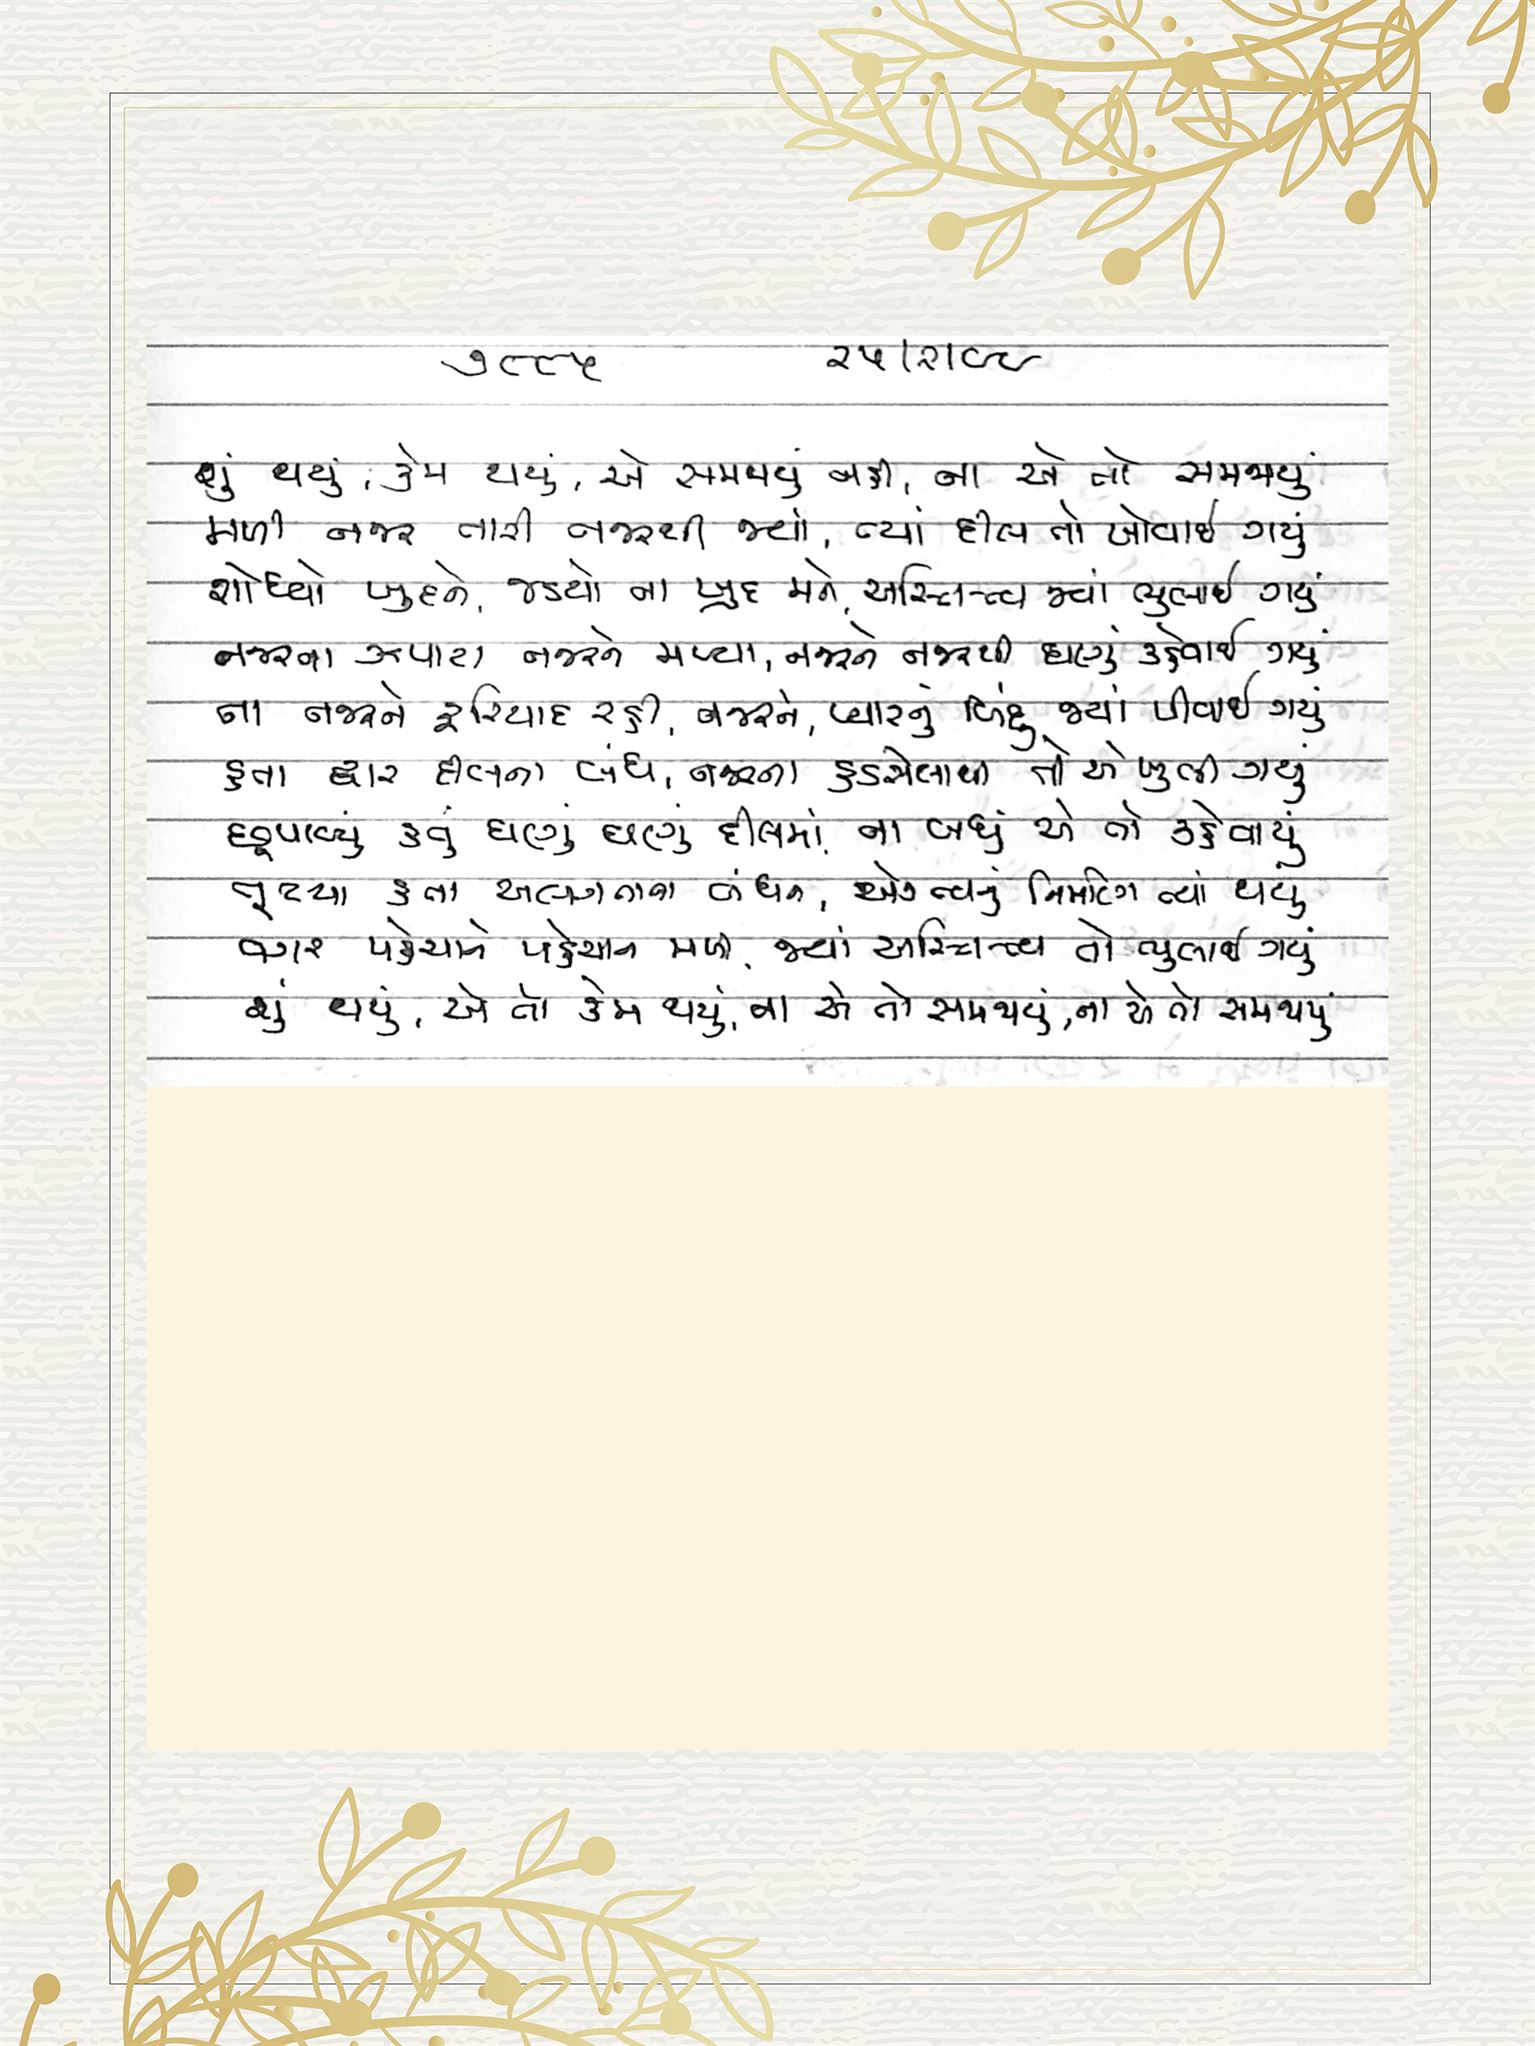 ૭૯૯૫ ૨૫/૨/૯૯
શું થયું, કેમ થયું, એ સમજાયું નહી, ના એ તો સમજાયું
મળી નજર તારી નજરથી જ્યાં, ત્યાં દીલ તો ખોવાઈ ગયું
શોધ્યો ખુદને, જડયો ના ખુદ મને, અસ્તિત્ત્વ જ્યાં ભુલાઈ ગયું
નજરના ઝપાટા નજરને મળ્યા, નજરને નજરથી ઘણું કહેવાઈ ગયું
ના નજરને ફરિયાદ રહી, નજરને, પ્યારનું બિંદુ જ્યાં પીવાઈ ગયું
હતા દ્વાર દીલના બંધ, નજરના હડસેલાથી તો એ ખુલી ગયું
છૂપાવ્યું હતું ઘણું ઘણું દીલમાં, ના બધું એ તો કહેવાયું
તૂટયા હતા અલગતાના બંધન, એકત્વનું નિર્માણ ત્યાં થયું
વગર પહેચાને પહેચાન મળી, જ્યાં અસ્તિત્ત્વ તો ભુલાઈ ગયું
શું થયું, એ તો કેમ થયું, ના એ તો સમજાયું, ના એ તો સમજાયું